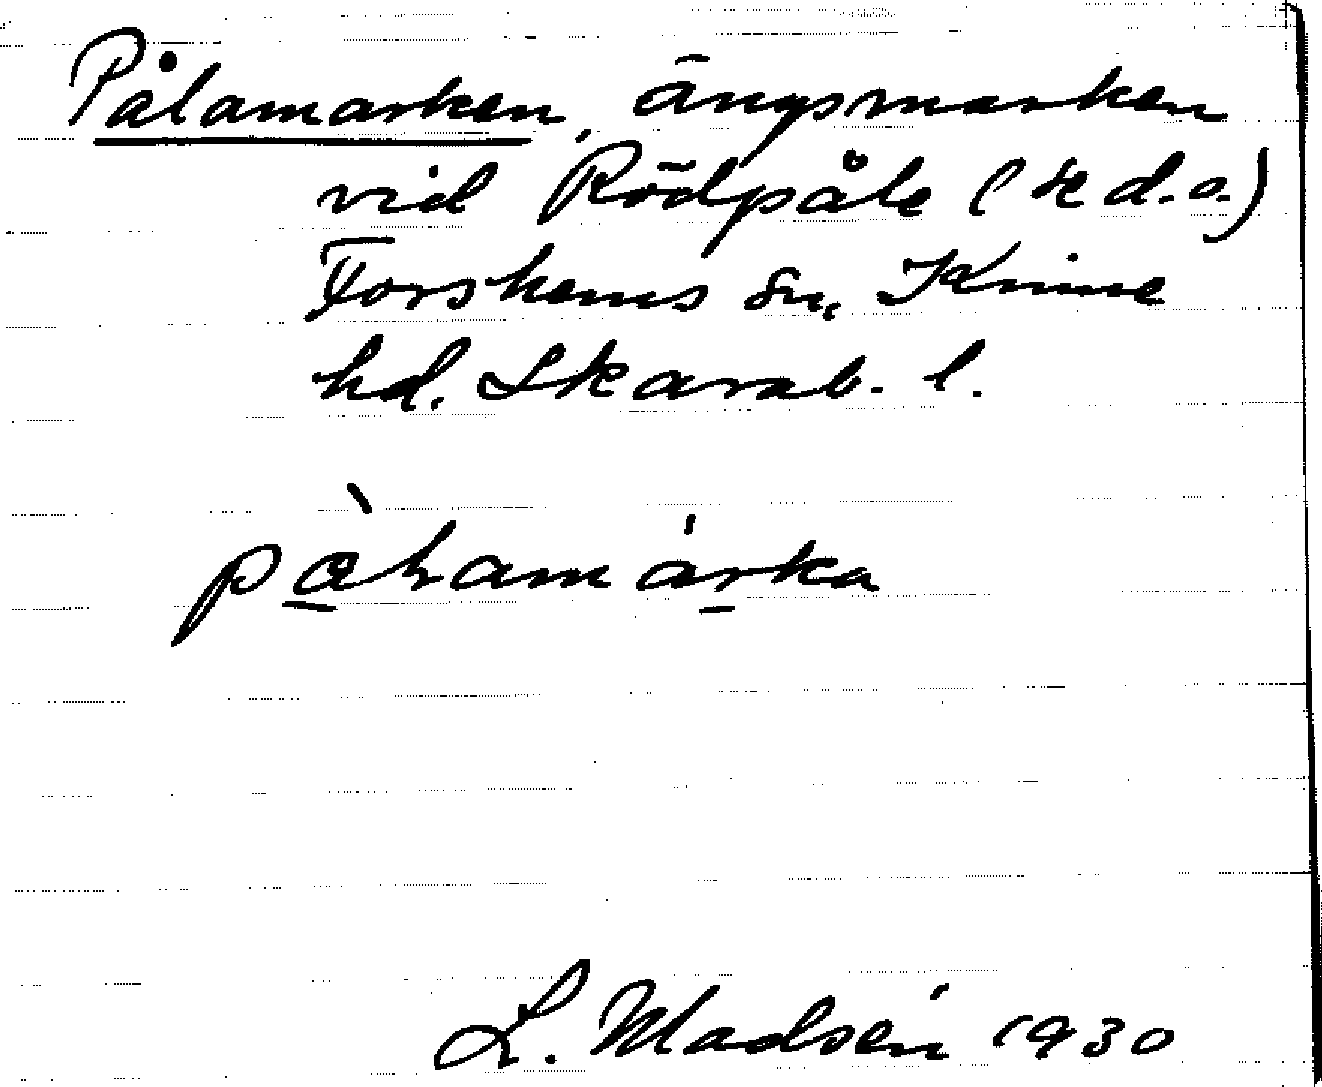 Pålamarken, ängsmarken
vid Rödpåle (se d.o.)
Forshems sn, Kinne
hd. Skarab. l.
pàlamárka
L. Madsén 1930